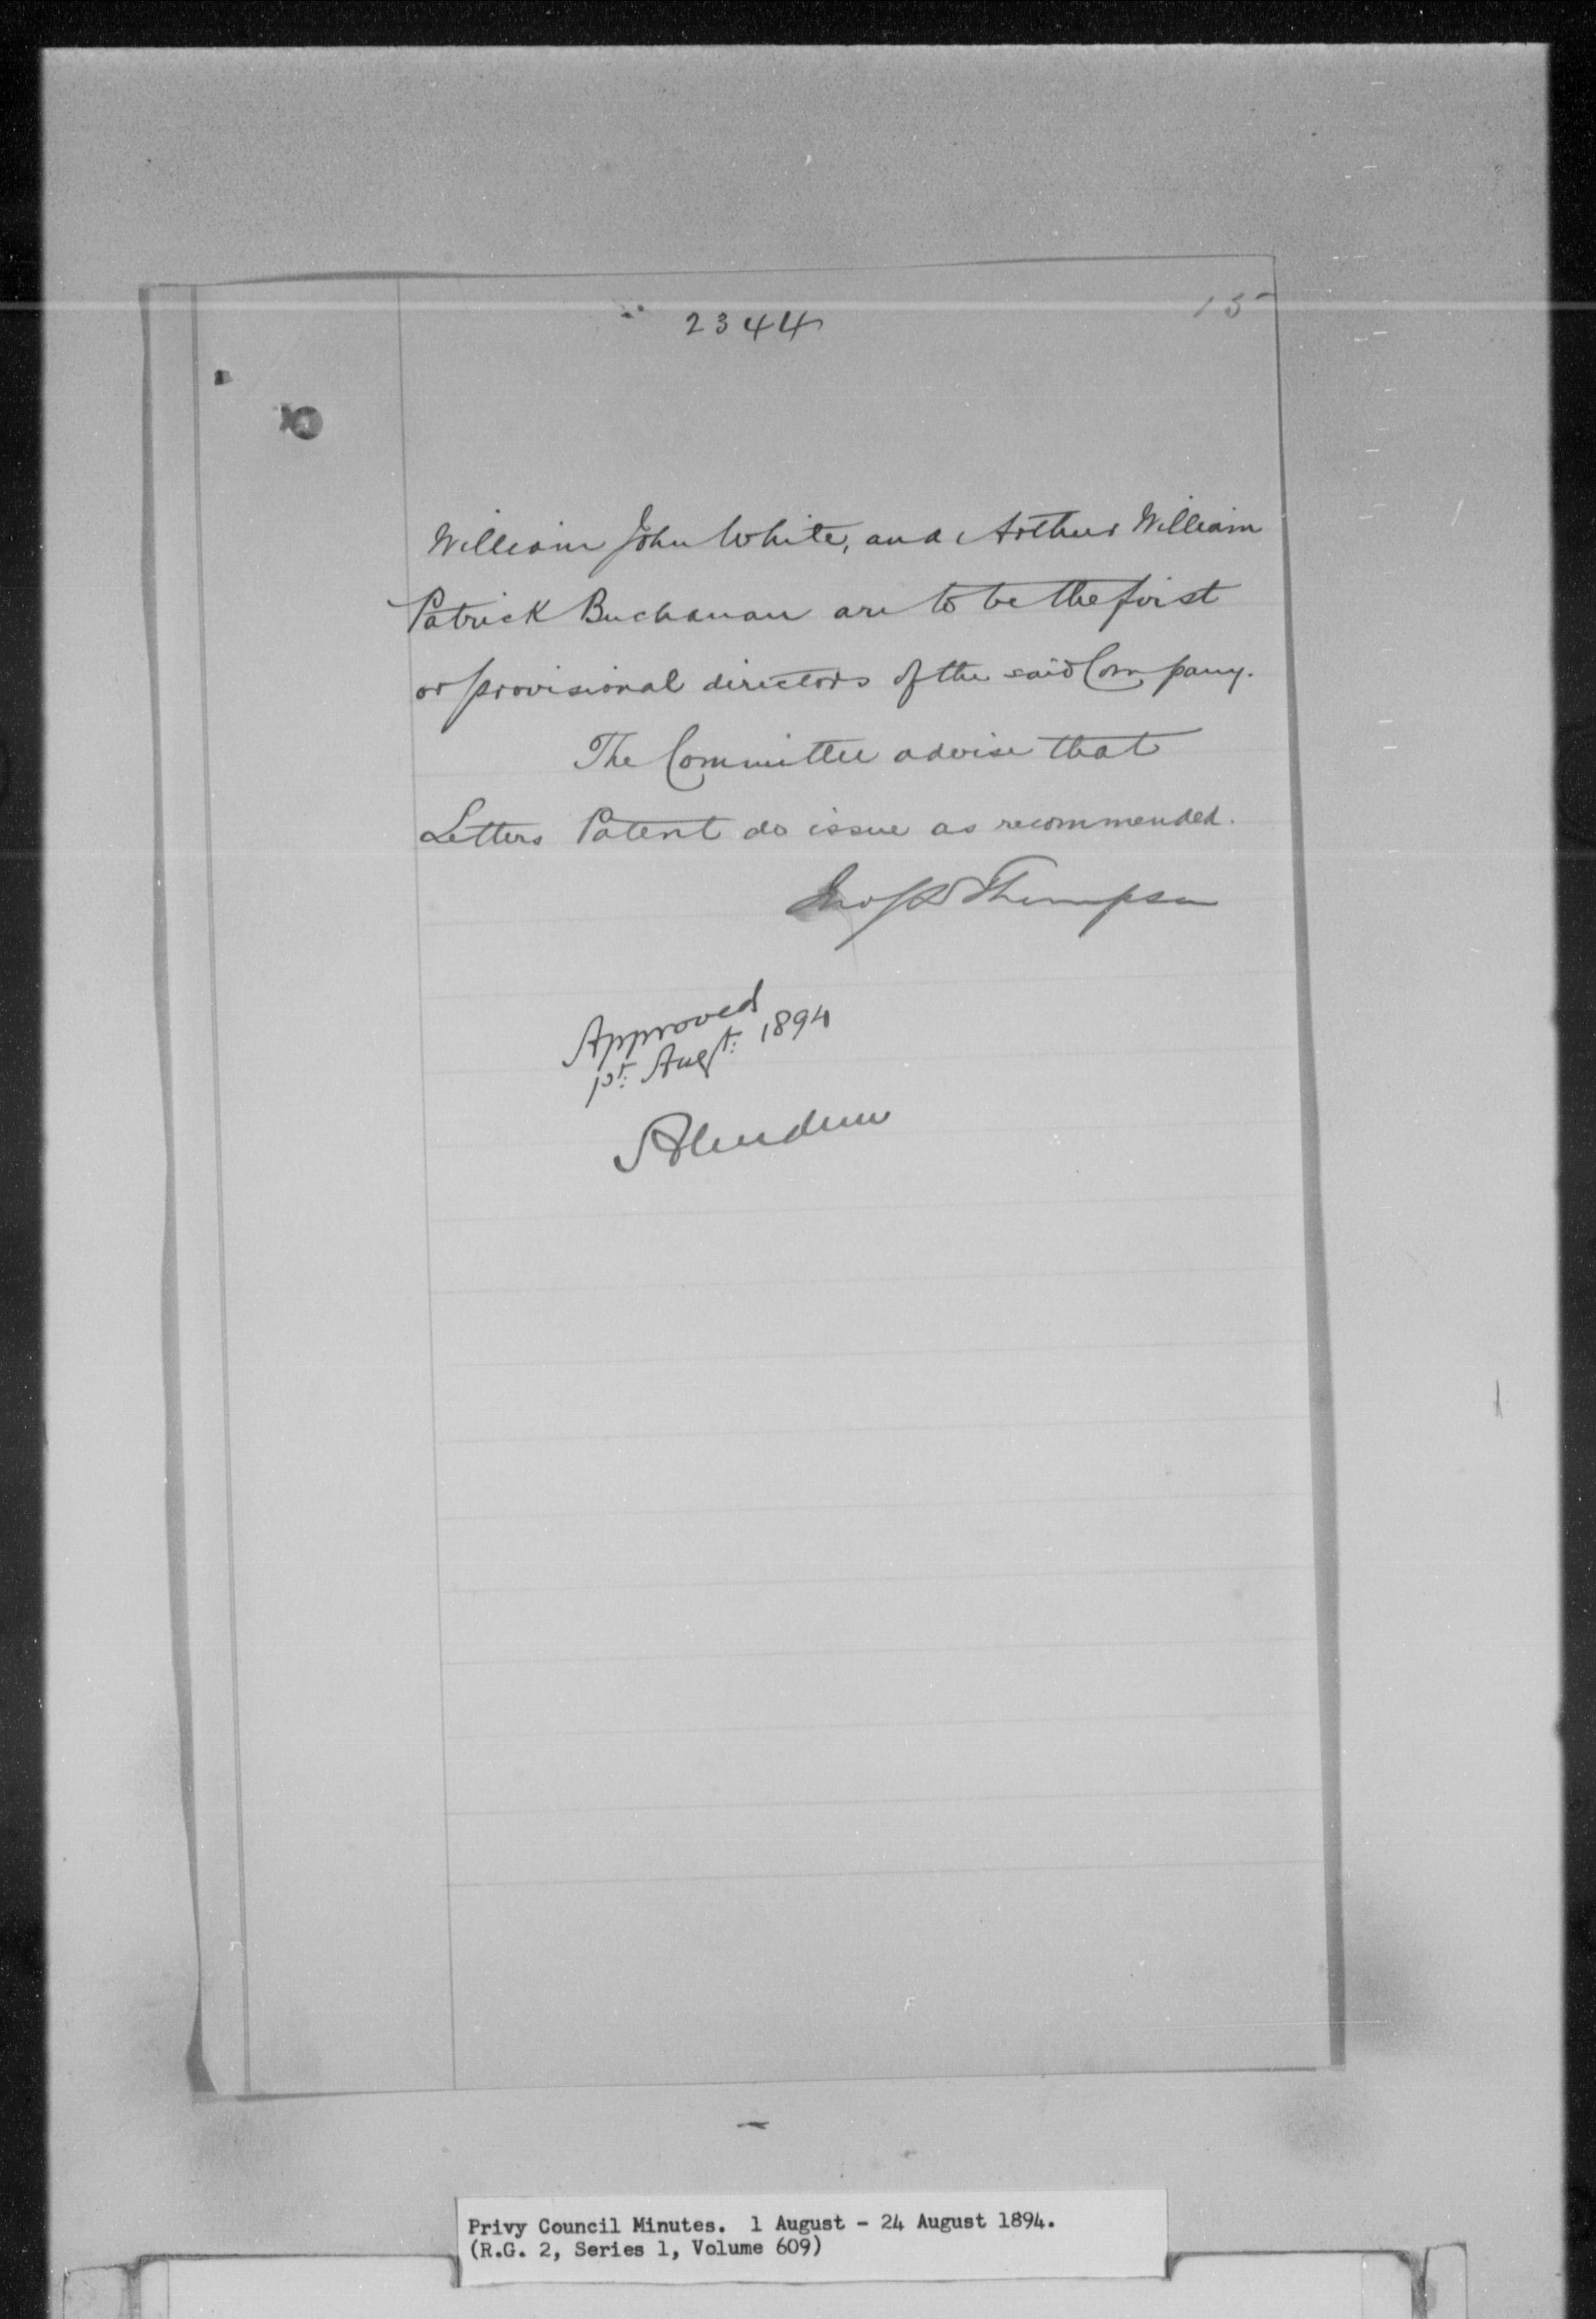 2344
15
William John White, and Arthur William
Patrick Buchanan are to be the first
or provisional directors of the said Company.
The Committee advise that
Letters Patent do issue as recommended.
Jno S D Thompson
Approved
1st. Augt: 1894
Aberdeen
Privy Council Minutes. 1 August - 24 August 1894.
(R.G. 2, Series 1, Volume 609)